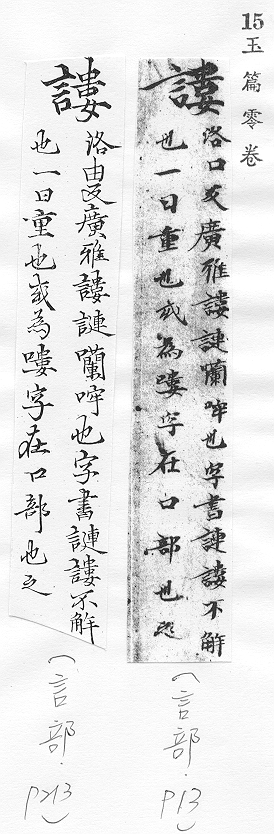 15玉篇零卷
謱
洛口反廣雅謱謰囒哰也字書謰謱不解
也一曰重也或為嘍字在口部也
（言部．P13）
謱
洛由反廣雅謱謰囒哰也字書謰謱不解
也一曰重也或為嘍字在口部也之
（言部．P213）